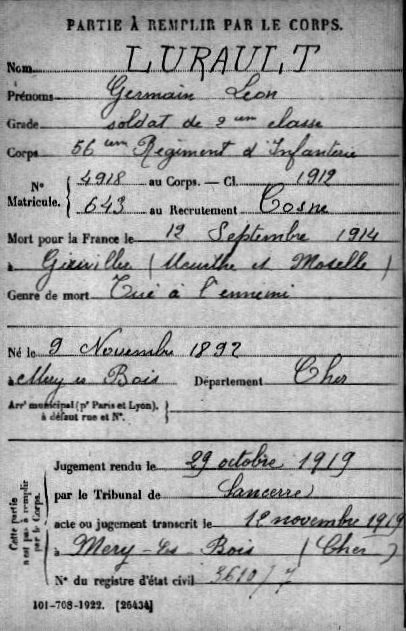 PARTIE À REMPLIR PAR LE CORPS.
Nom LURAULT
Prénoms Germain Léon
Grade soldat de 2ème classe
Corps 56ème Régiment d'Infanterie
N° Matricule. { 4918 au Corps. — Cl. 1912
643 au Recrutement Cosne
Mort pour la France le 12 Septembre 1914
à (Meurthe et Moselle)
Genre de mort Tué à l'ennemi
Né le 9 Novembre 1892
à Mery es Bois Département Cher
Arr' municipal (p' Paris et Lyon), à défaut rue et N°. }
Cette partie n'est pas à remplir par le Corps.
Jugement rendu le 29 octobre 1919
par le Tribunal de Sancerre
acte ou jugement transcrit le novembre 1919
à Mery-es-Bois (Cher)
N° du registre d'état civil
101-708-1922. [26434]